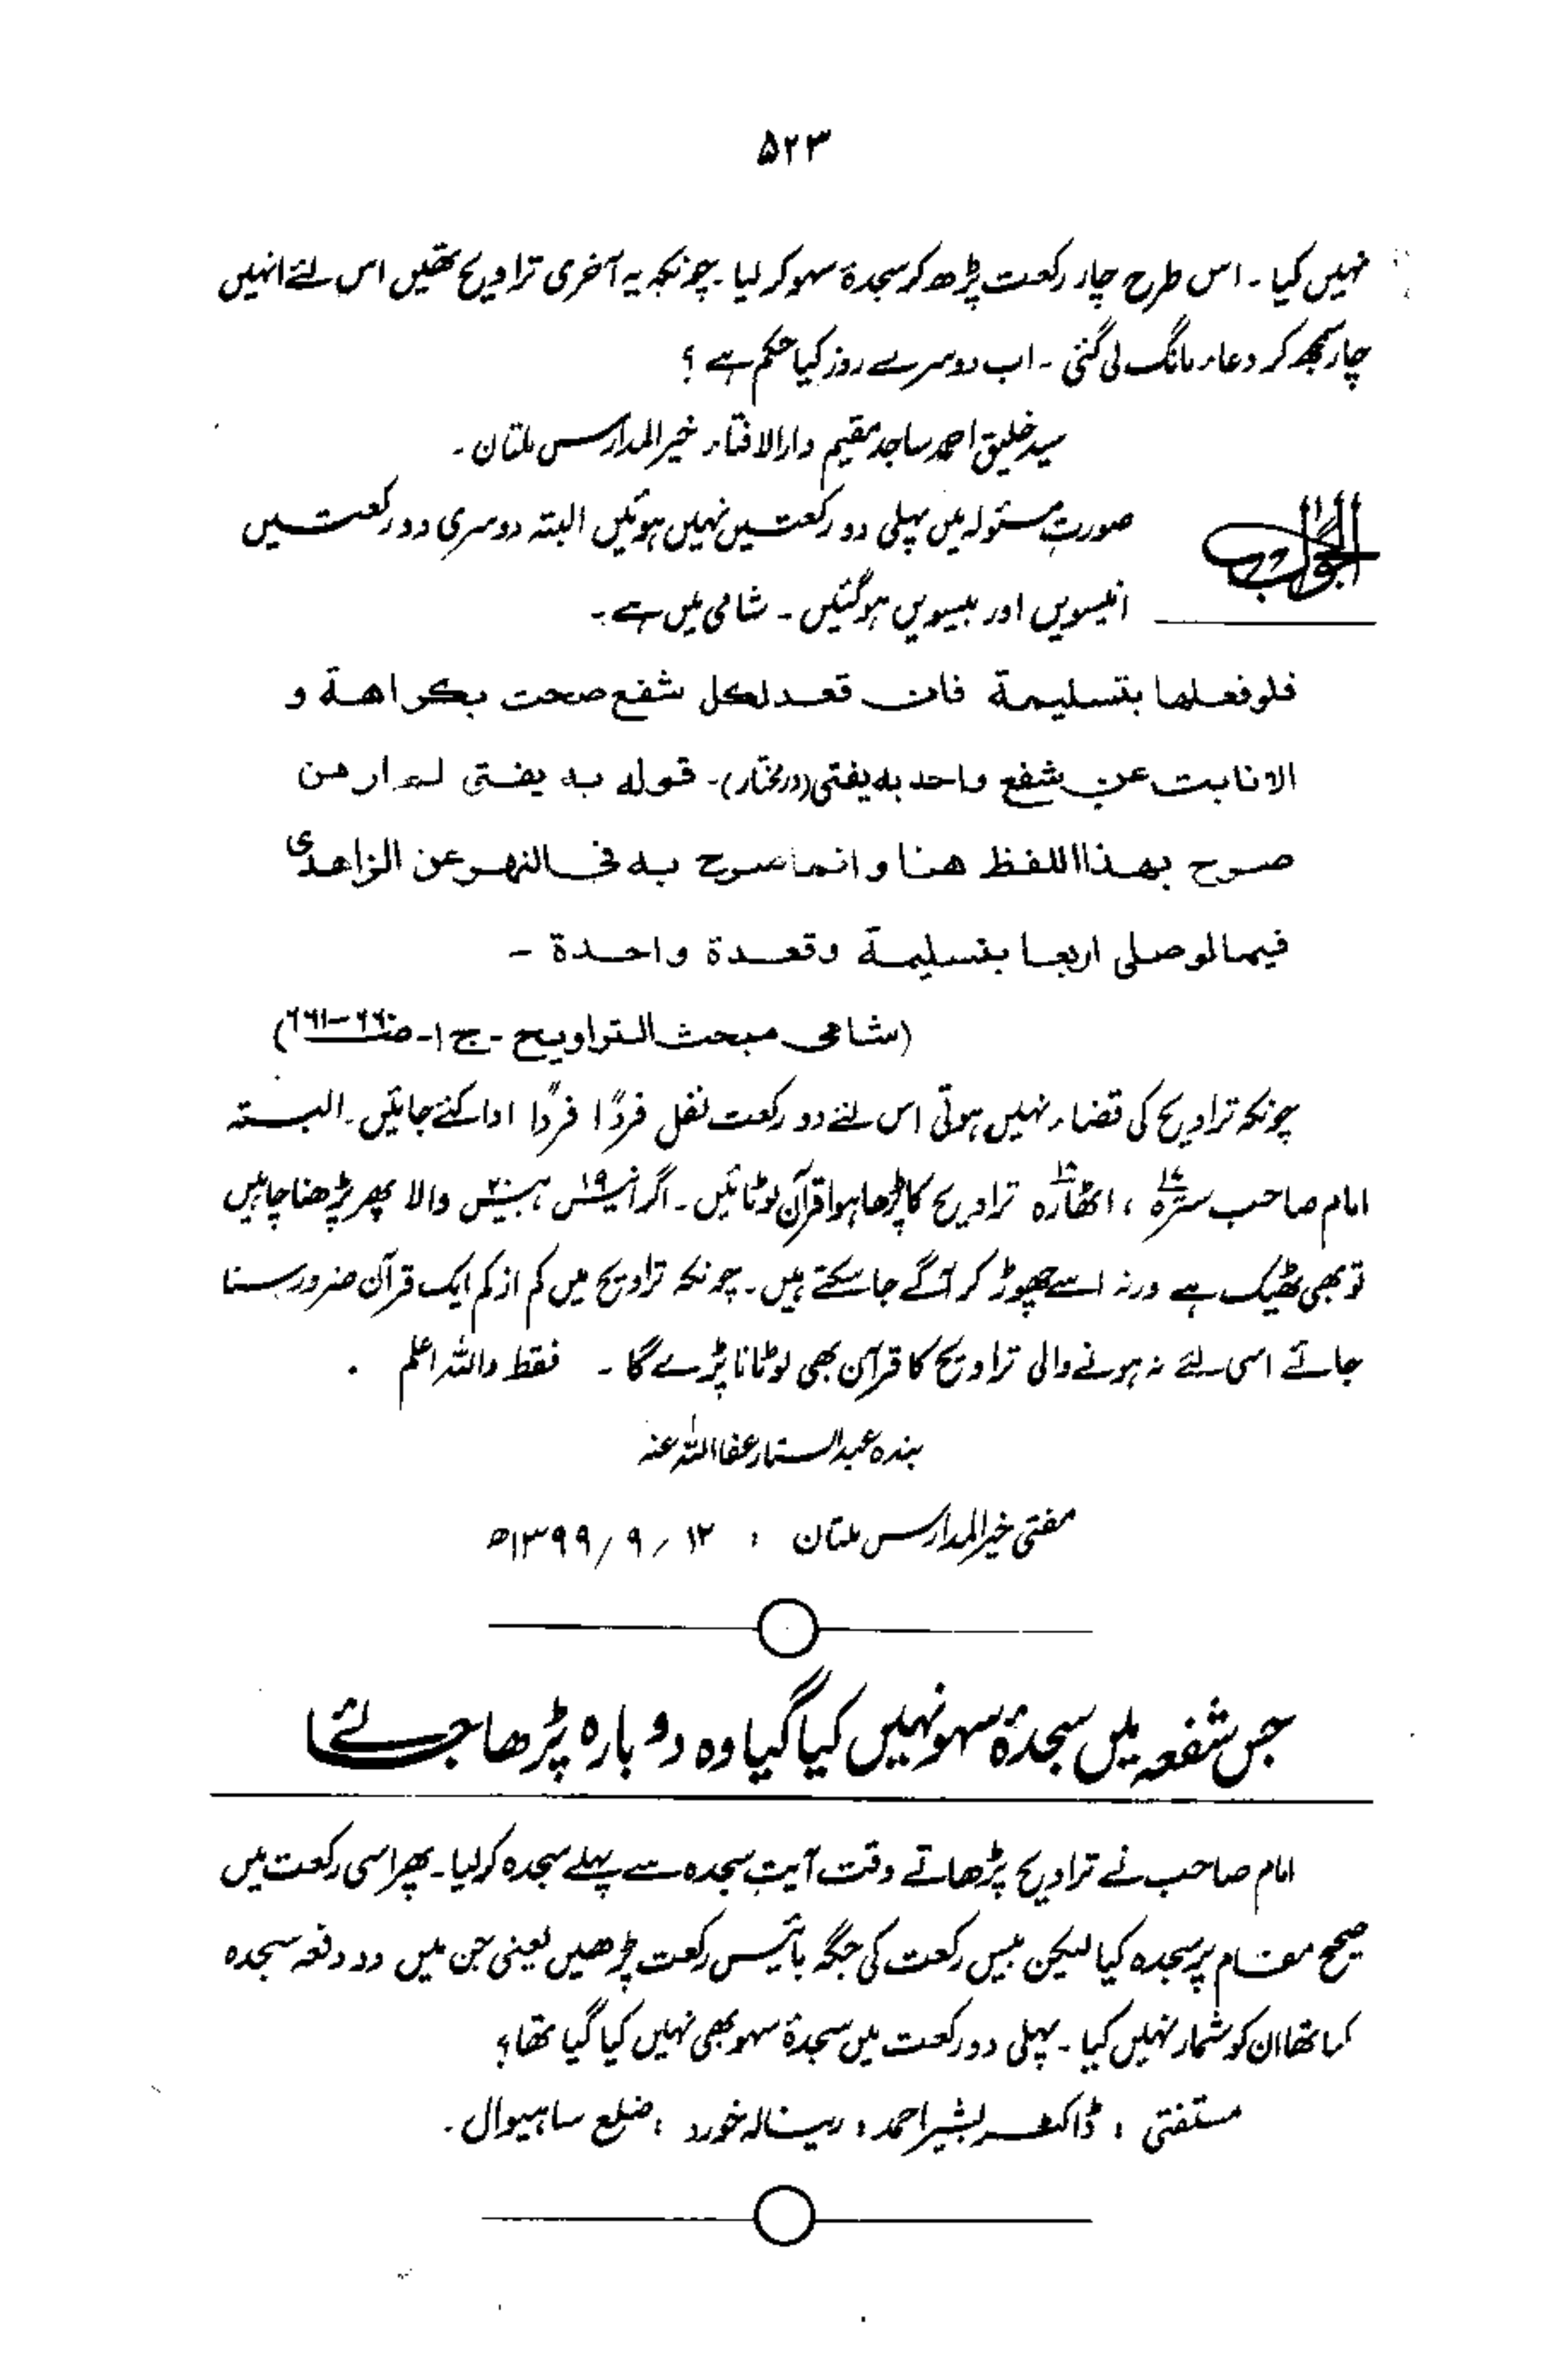 ۵۲۳
نہیں کیا ۔ اس طرح چار رکعت پڑھ کر سجدۂ سہو کر لیا ۔ چونکہ یہ آخری تراویح تھیں اس لئے انہیں
چار سمجھ کر دعاء مانگ لی گئی ۔ اب دوسرے روز کیا حکم ہے ؟
سید خلیق احمد ساجد مقیم دارالافتاء خیر المدارس ملتان ۔
الجواب
صورتِ مسئولہ میں پہلی دو رکعتیں نہیں ہوئیں البتہ دوسری دو رکعتیں
انیسویں اور بیسویں ہو گئیں ۔ شامی میں ہے ۔
فلو فعلها بتسليمة فان قعد لكل شفع صحت بكراهة و
الا نابت عن شفع واحد به يفتى (درمختار) ۔ قوله به يفتى لم ار من
صرح بهذا اللفظ هنا وانما صرح به في النهر عن الزاهدى
فيما لو صلى اربعا بتسليمة وقعدة واحدة ۔
(شامی مبحث التراويح ۔ ج ۱ ۔ ص ۶۶۰ – ۶۶۱)
چونکہ تراویح کی قضاء نہیں ہوتی اس لئے دو رکعت نفل فرداً فرداً ادا کئے جائیں ۔ البتہ
امام صاحب سترہ ۱۷ ، اٹھارہ ۱۸ تراویح کا پڑھا ہوا قرآن لوٹائیں ۔ اگر انیس ۱۹ ، بیس ۲۰ والا پھر پڑھنا چاہیں
تو بھی ٹھیک ہے ورنہ اسے چھوڑ کر آگے جا سکتے ہیں ۔ چونکہ تراویح میں کم از کم ایک قرآن ضرور سنا
جائے اسی لئے نہ ہونے والی تراویح کا قرآن بھی لوٹانا پڑے گا ۔ فقط واللہ اعلم .
بندہ عبدالستار عفا اللہ عنہ
مفتی خیر المدارس ملتان ، ۱۲ / ۹ / ۱۳۹۹ھ
جس شفعہ میں سجدۂ سہو نہیں کیا گیا وہ دوبارہ پڑھا جائے
امام صاحب نے تراویح پڑھاتے وقت آیتِ سجدہ سے پہلے سجدہ کر لیا ۔ پھر اسی رکعت میں
صحیح مقام پر سجدہ کیا لیکن بیس رکعت کی جگہ بائیس رکعت پڑھیں یعنی جن میں دو دفعہ سجدہ
کیا تھا ان کو شمار نہیں کیا ۔ پہلی دو رکعت میں سجدۂ سہو بھی نہیں کیا گیا تھا ؟
مستفتی ، ڈاکٹر بشیر احمد ، رینالہ خورد ، ضلع ساہیوال ۔